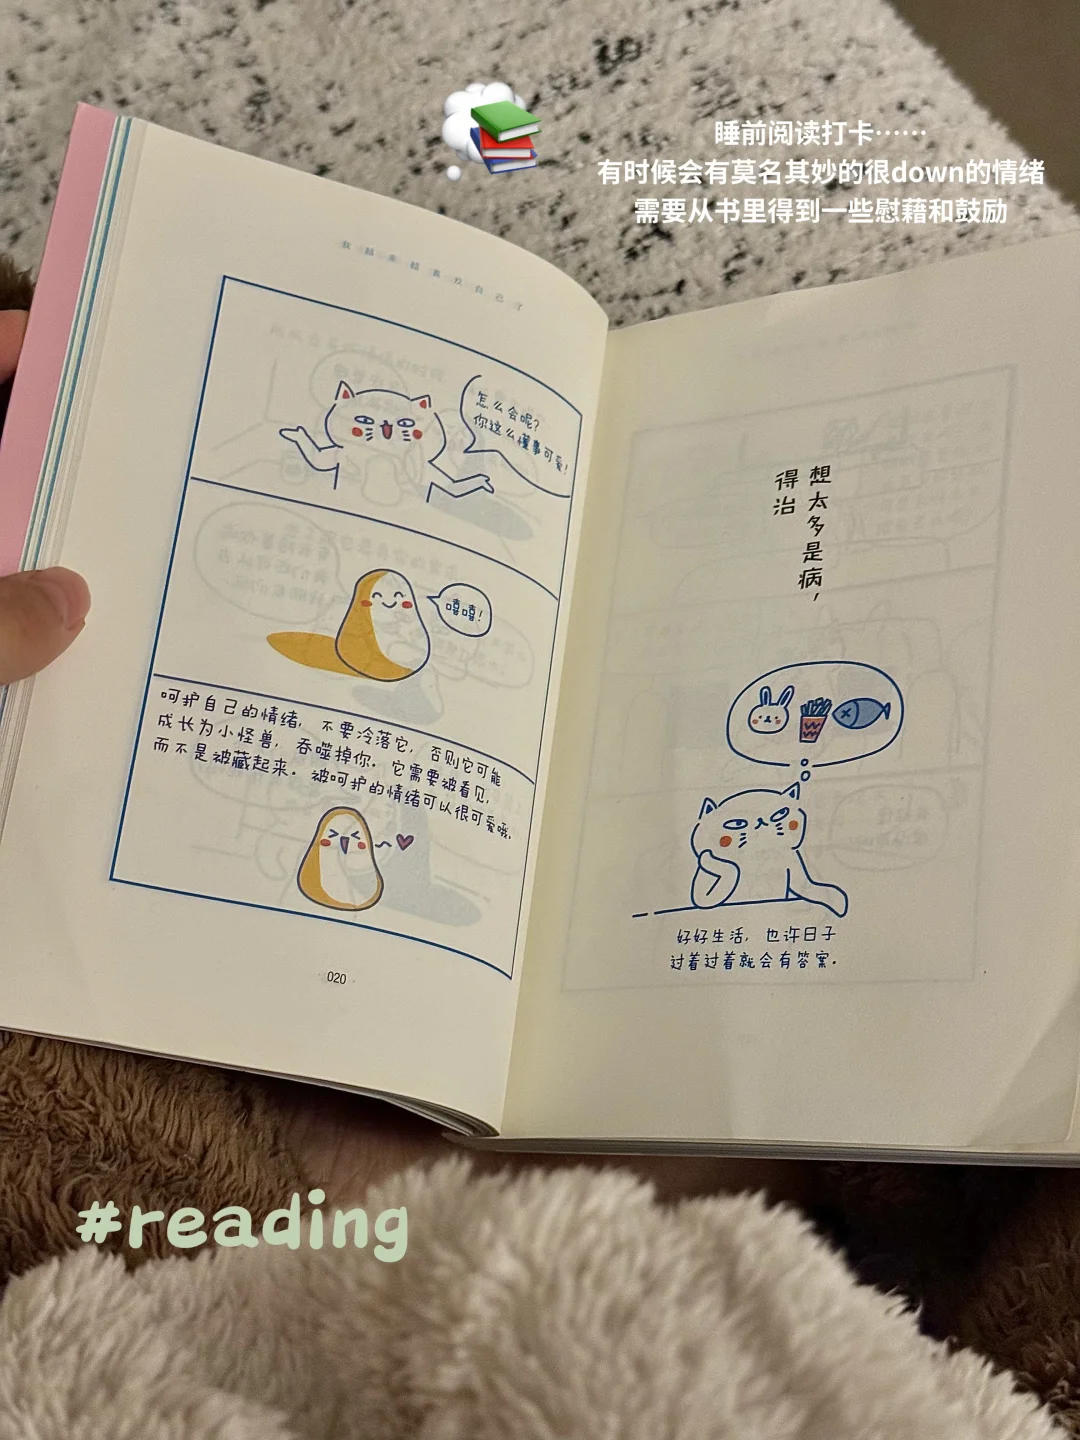 睡前阅读打卡……
有时候会有莫名其妙的很down的情绪
需要从书里得到一些慰藉和鼓励
我越来越喜欢自己了
怎么会呢?
你这么懂事可爱!
嘻嘻!
呵护自己的情绪, 不要冷落它, 否则它可能
成长为小怪兽, 吞噬掉你. 它需要被看见,
而不是被藏起来. 被呵护的情绪可以很可爱哦.
020
想太多是病,
得治
好好生活, 也许日子
过着过着就会有答案.
#reading